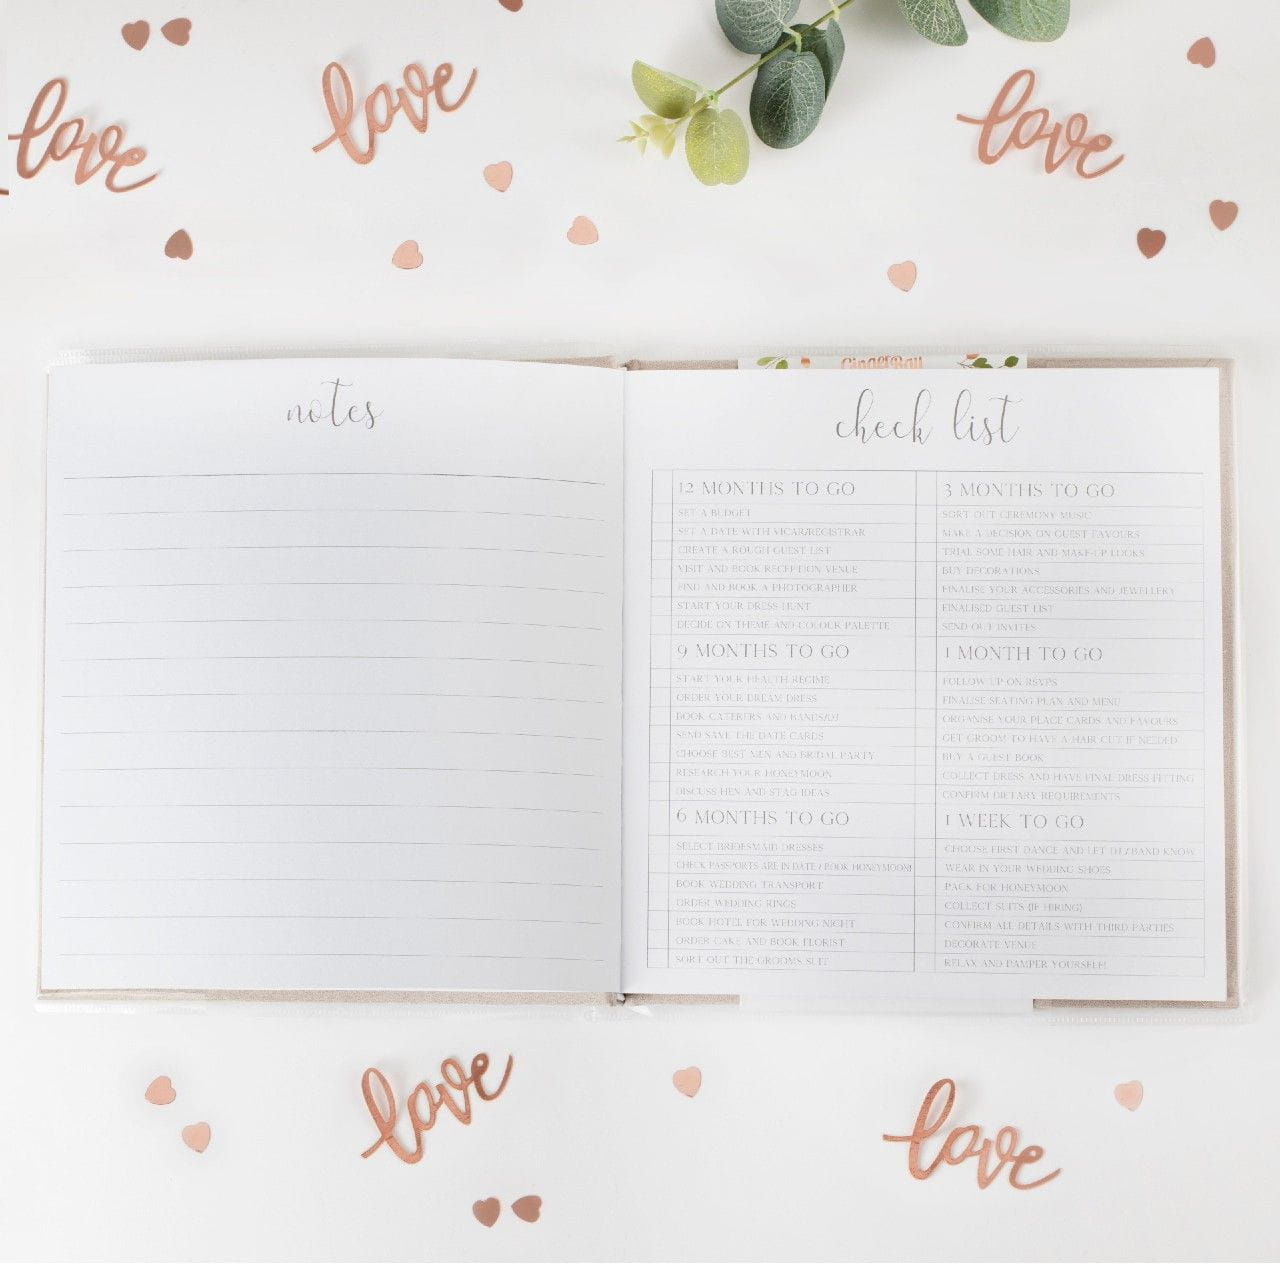 love
love
love
notes
GingerRay
check list
12 MONTHS TO GO
SET A BUDGET
SET A DATE WITH VICAR/REGISTRAR
CREATE A ROUGH GUEST LIST
VISIT AND BOOK RECEPTION VENUE
FIND AND BOOK A PHOTOGRAPHER
START YOUR DRESS HUNT
DECIDE ON THEME AND COLOUR PALETTE
9 MONTHS TO GO
START YOUR HEALTH REGIME
ORDER YOUR DREAM DRESS
BOOK CATERERS AND BANDS/DJ
SEND SAVE THE DATE CARDS
CHOOSE BEST MEN AND BRIDAL PARTY
RESEARCH YOUR HONEYMOON
DISCUSS HEN AND STAG IDEAS
6 MONTHS TO GO
SELECT BRIDESMAID DRESSES
CHECK PASSPORTS ARE IN DATE / BOOK HONEYMOON!
BOOK WEDDING TRANSPORT
ORDER WEDDING RINGS
BOOK HOTEL FOR WEDDING NIGHT
ORDER CAKE AND BOOK FLORIST
SORT OUT THE GROOMS SUIT
3 MONTHS TO GO
SORT OUT CEREMONY MUSIC
MAKE A DECISION ON GUEST FAVOURS
TRIAL SOME HAIR AND MAKE-UP LOOKS
BUY DECORATIONS
FINALISE YOUR ACCESSORIES AND JEWELLERY
FINALISED GUEST LIST
SEND OUT INVITES
1 MONTH TO GO
FOLLOW UP ON RSVPS
FINALISE SEATING PLAN AND MENU
ORGANISE YOUR PLACE CARDS AND FAVOURS
GET GROOM TO HAVE A HAIR CUT IF NEEDED
BUY A GUEST BOOK
COLLECT DRESS AND HAVE FINAL DRESS FITTING
CONFIRM DIETARY REQUIREMENTS
1 WEEK TO GO
CHOOSE FIRST DANCE AND LET DJ / BAND KNOW
WEAR IN YOUR WEDDING SHOES
PACK FOR HONEYMOON
COLLECT SUITS (IF HIRING)
CONFIRM ALL DETAILS WITH THIRD PARTIES
DECORATE VENUE
RELAX AND PAMPER YOURSELF!
love
love